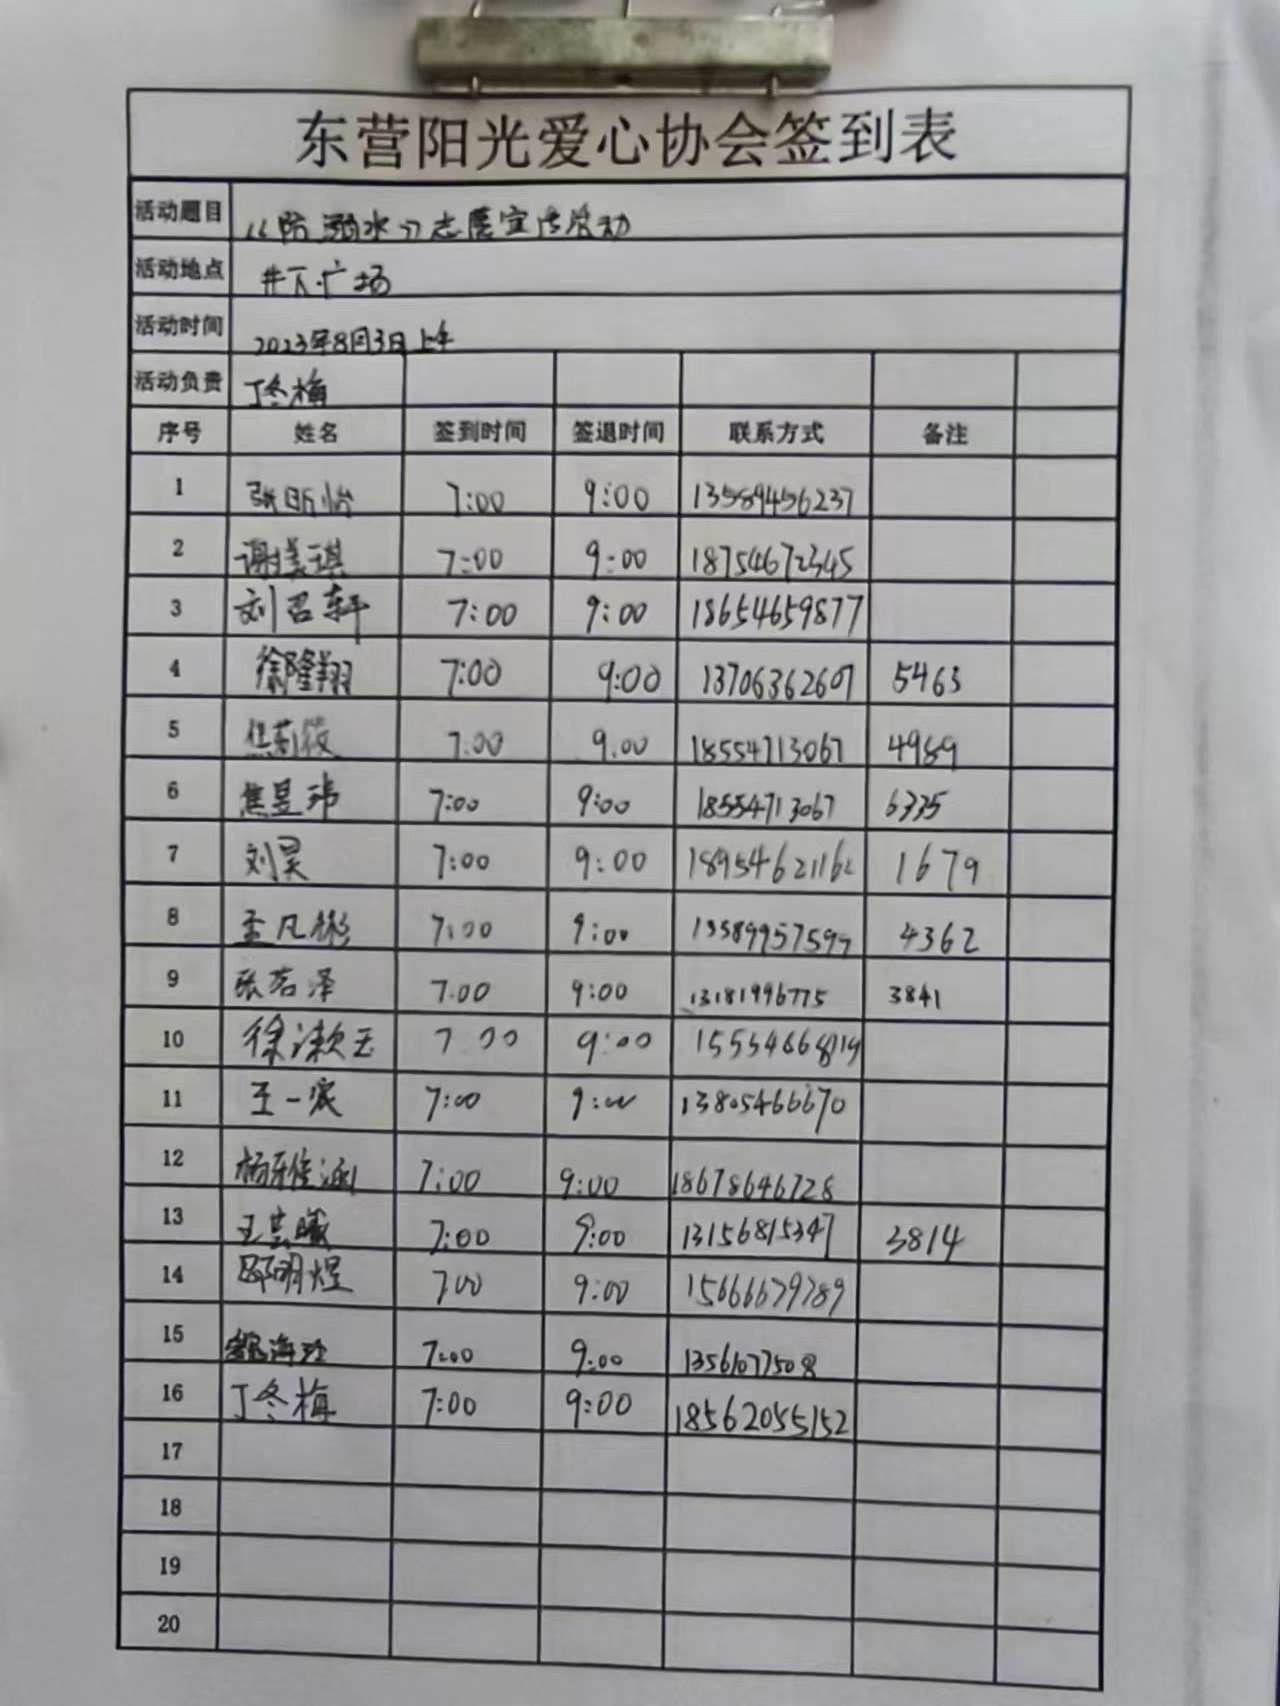 东营阳光爱心协会签到表
活动题目 "防溺水"志愿宣传活动
活动地点 井下广场
活动时间 2023年8月3日上午
活动负责 丁冬梅
序号 姓名 签到时间 签退时间 联系方式 备注
1 张昕怡 7:00 9:00 13589456237
2 谢美琪 7:00 9:00 18754672345
3 刘召轩 7:00 9:00 18654659877
4 徐隆翔 7:00 9:00 13706362607 5463
5 7:00 9:00 18554713067 4989
6 焦昱玮 7:00 9:00 18554713067 6335
7 刘昊 7:00 9:00 18954621162 1679
8 孟凡彬 7:00 9:00 4362
9 张若泽 7:00 9:00 13181996775 3841
10 7:00 9:00
11 王一宸 7:00 9:00 13805466670
12 杨雅涵 7:00 9:00 18678646728
13 王艺曦 7:00 9:00 13156815347 3814
14 邵明煜 7:00 9:00 15666679789
15 7:00 9:00 13561077508
16 丁冬梅 7:00 9:00 18562055152
17
18
19
20